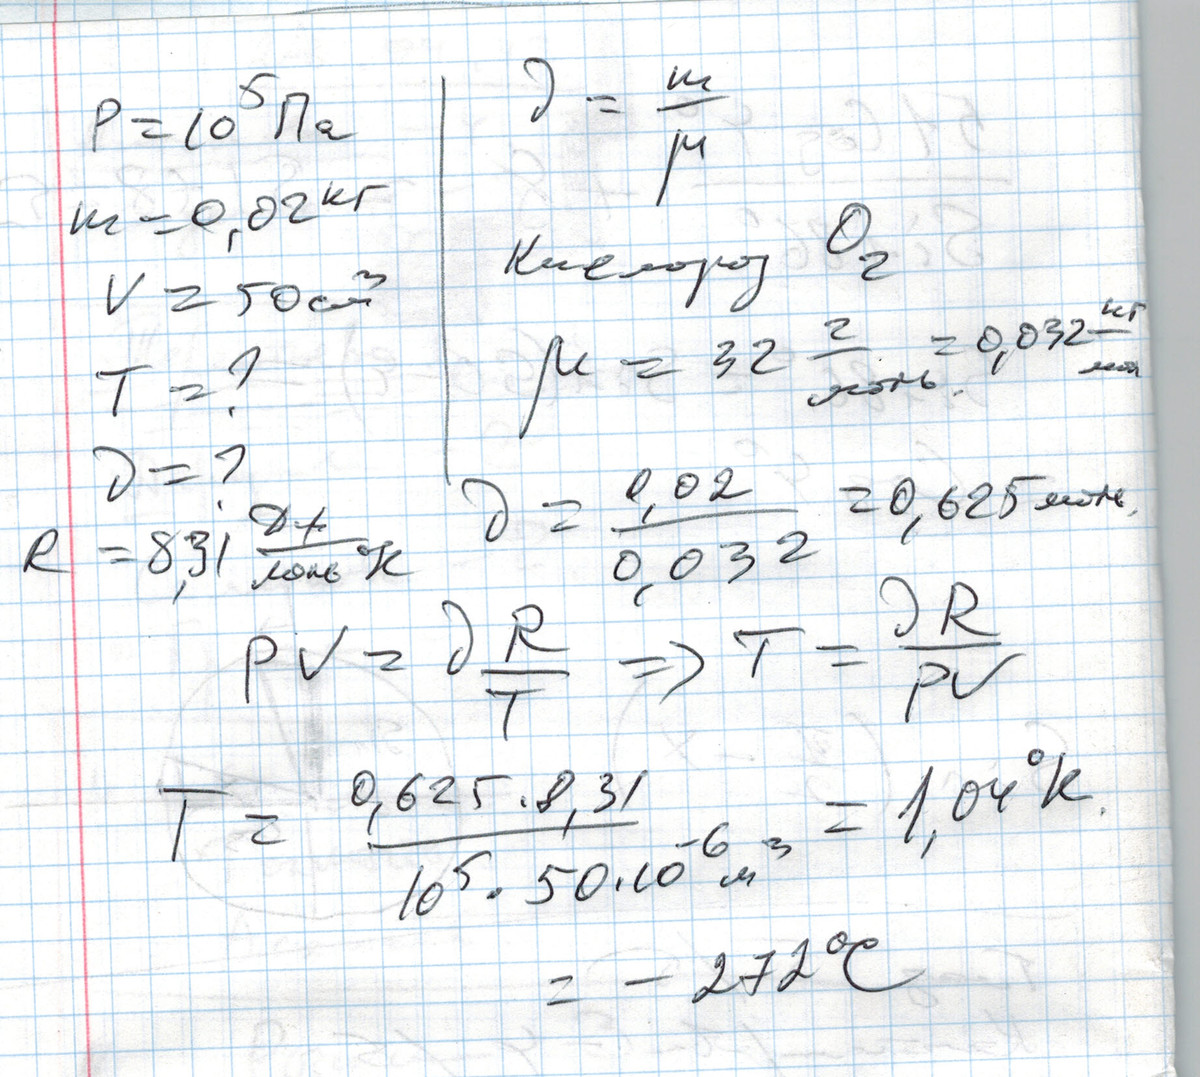 P = 10⁵ Па
m = 0,02 кг
V = 50 см³
T = ?
∂ = ?
R = 8,31 Дж/моль °К
∂ = m/μ
Кислород O₂
μ = 32 г/моль. = 0,032 кг/мол
∂ = 0,02/0,032 = 0,625 моль.
PV = ∂ R/T => T = ∂R/PV
T = 0,625 · 8,31/10⁵ · 50 · 10⁻⁶ м³ = 1,04 °К.
= - 272 °C